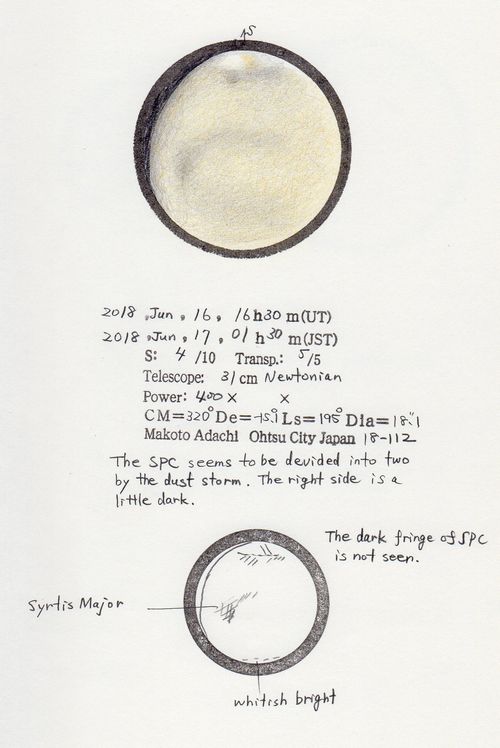 S
2018, Jun, 16, 16h30m(UT)
2018, Jun, 17, 01h30m(JST)
S: 4/10 Transp.: 5/5
Telescope: 31cm Newtonian
Power: 400× ×
CM=320° De=-15.°1 Ls=195° Dia=18."1
Makoto Adachi Ohtsu City Japan 18-112
The SPC seems to be devided into two
by the dust storm. The right side is a
little dark.
The dark fringe of SPC
is not seen.
Syrtis Major
whitish bright